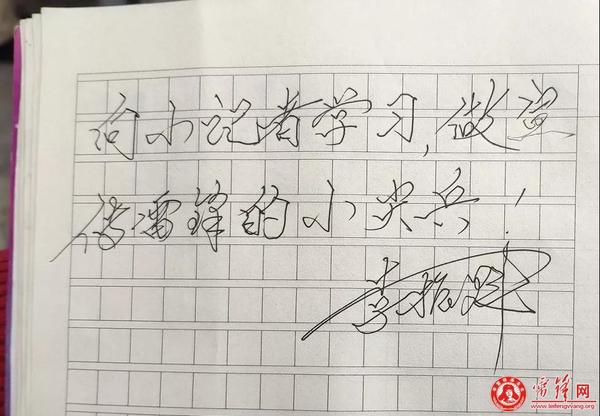 向小记者学习，做宣
传雷锋的小尖兵！
李振
雷锋网
www.leifengwang.org